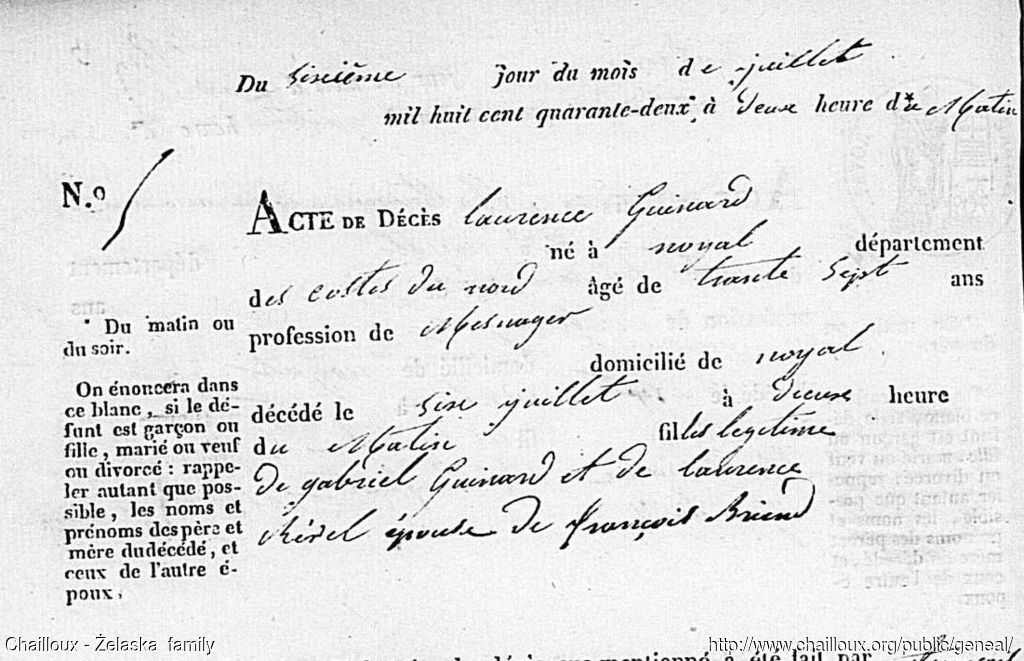 Du sixième jour du mois de juillet
mil huit cent quarante-deux, à deux heure d*u Matin
N.º 5
ACTE DE DÉCÈS laurence Guinard
né à noyal département
des costes du nord âgé de trante sept ans
profession de Mesnager
domicilié de noyal
décédé le sixe juillet à deuxe heure
du Matin filles legitime
de gabriel Guinard et de laurence
épouse de françois Briend
* Du matin ou
du soir.
On énoncera dans
ce blanc, si le dé-
funt est garçon ou
fille, marié ou veuf
ou divorcé : rappe-
ler autant que pos-
sible, les noms et
prénoms des père et
mère du décédé, et
ceux de l'autre é-
poux.
mentionné a été fait par
Chailloux - Żelaska family
http://www.chailloux.org/public/geneal/